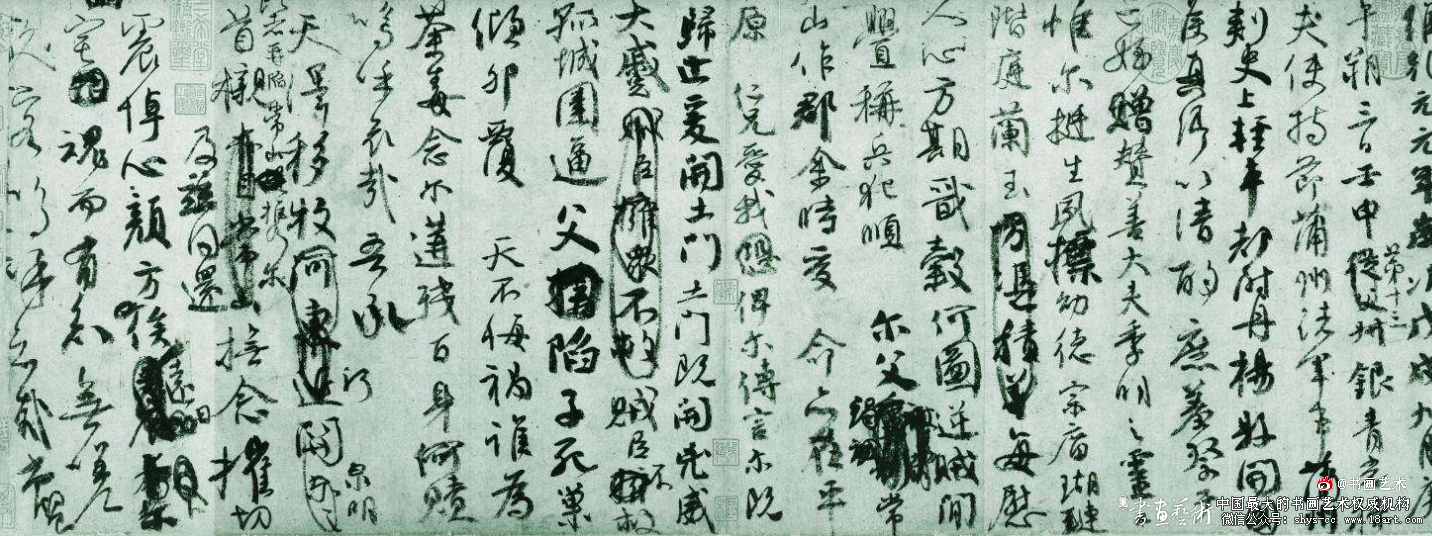 維乾元元年歲次戊戌九月庚
午朔三日壬申第十三從父銀青光祿
夫使持節蒲州諸軍事蒲州
刺史上輕車都尉丹楊縣開國
侯真卿以清酌庶羞祭于
亡姪贈贊善大夫季明之靈
惟爾挺生夙標幼德宗廟瑚璉
階庭蘭玉每慰
人心方期戩穀何圖逆賊閒
釁稱兵犯順爾父竭誠常
山作郡余時受命亦在平
原仁兄愛我俾爾傳言爾既
歸止爰開土門土門既開凶威
大蹙賊臣不救
孤城圍逼父陷子死巢
傾卵覆天不悔禍誰為
荼毒念爾遘殘百身何贖
嗚呼哀哉吾承
天澤移牧河關泉明
比者再陷常山攜爾
首櫬及茲同還撫念摧切
震悼心顏方俟遠日
宅魂而有知無嗟
久客嗚呼哀哉尚饗
@书画艺术
書畫藝術
中国最大的书画艺术权威机构
微信公众号：shys-cc www.18art.com